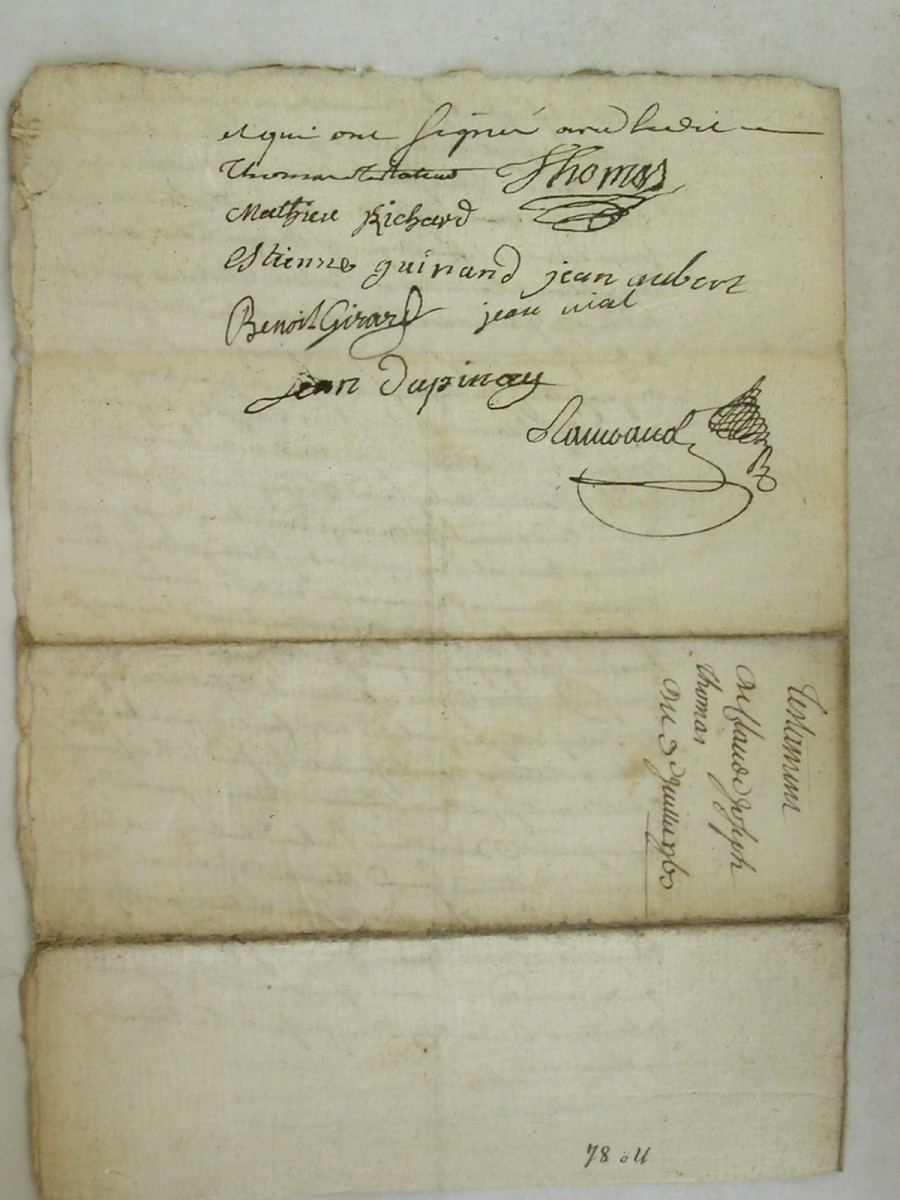 et qui ont signé avec ledit
Thomas testateur Thomas
Mathieu Richard
Estienne guinand jean aubert
Benoit Girard jean vial
jean Dupinay
Testament
De Claude joseph
thomas
Du 3 juillet
78